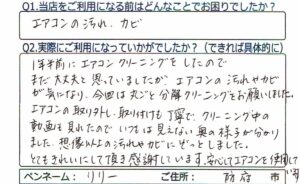 Q1.当店をご利用になる前はどんなことでお困りでしたか？
エアコンの汚れ、カビ
Q2.実際にご利用になっていかがでしたか？（できれば具体的に）
1年半前にエアコンクリーニングをしたので
まだ大丈夫と思っていましたが、エアコンの汚れやカビ
が気になり、今回は丸ごと分解クリーニングをお願いしました。
エアコンの取り外し、取り付けも丁寧で、クリーニング中の
動画も見れたのでいつもは見えない奥の様子が分かり
ました。想像以上の汚れやカビにぞっとしました。
とてもきれいにして頂き感謝しています。安心してエアコンを使用して
ペンネーム：リリー ご住所： 防府 市